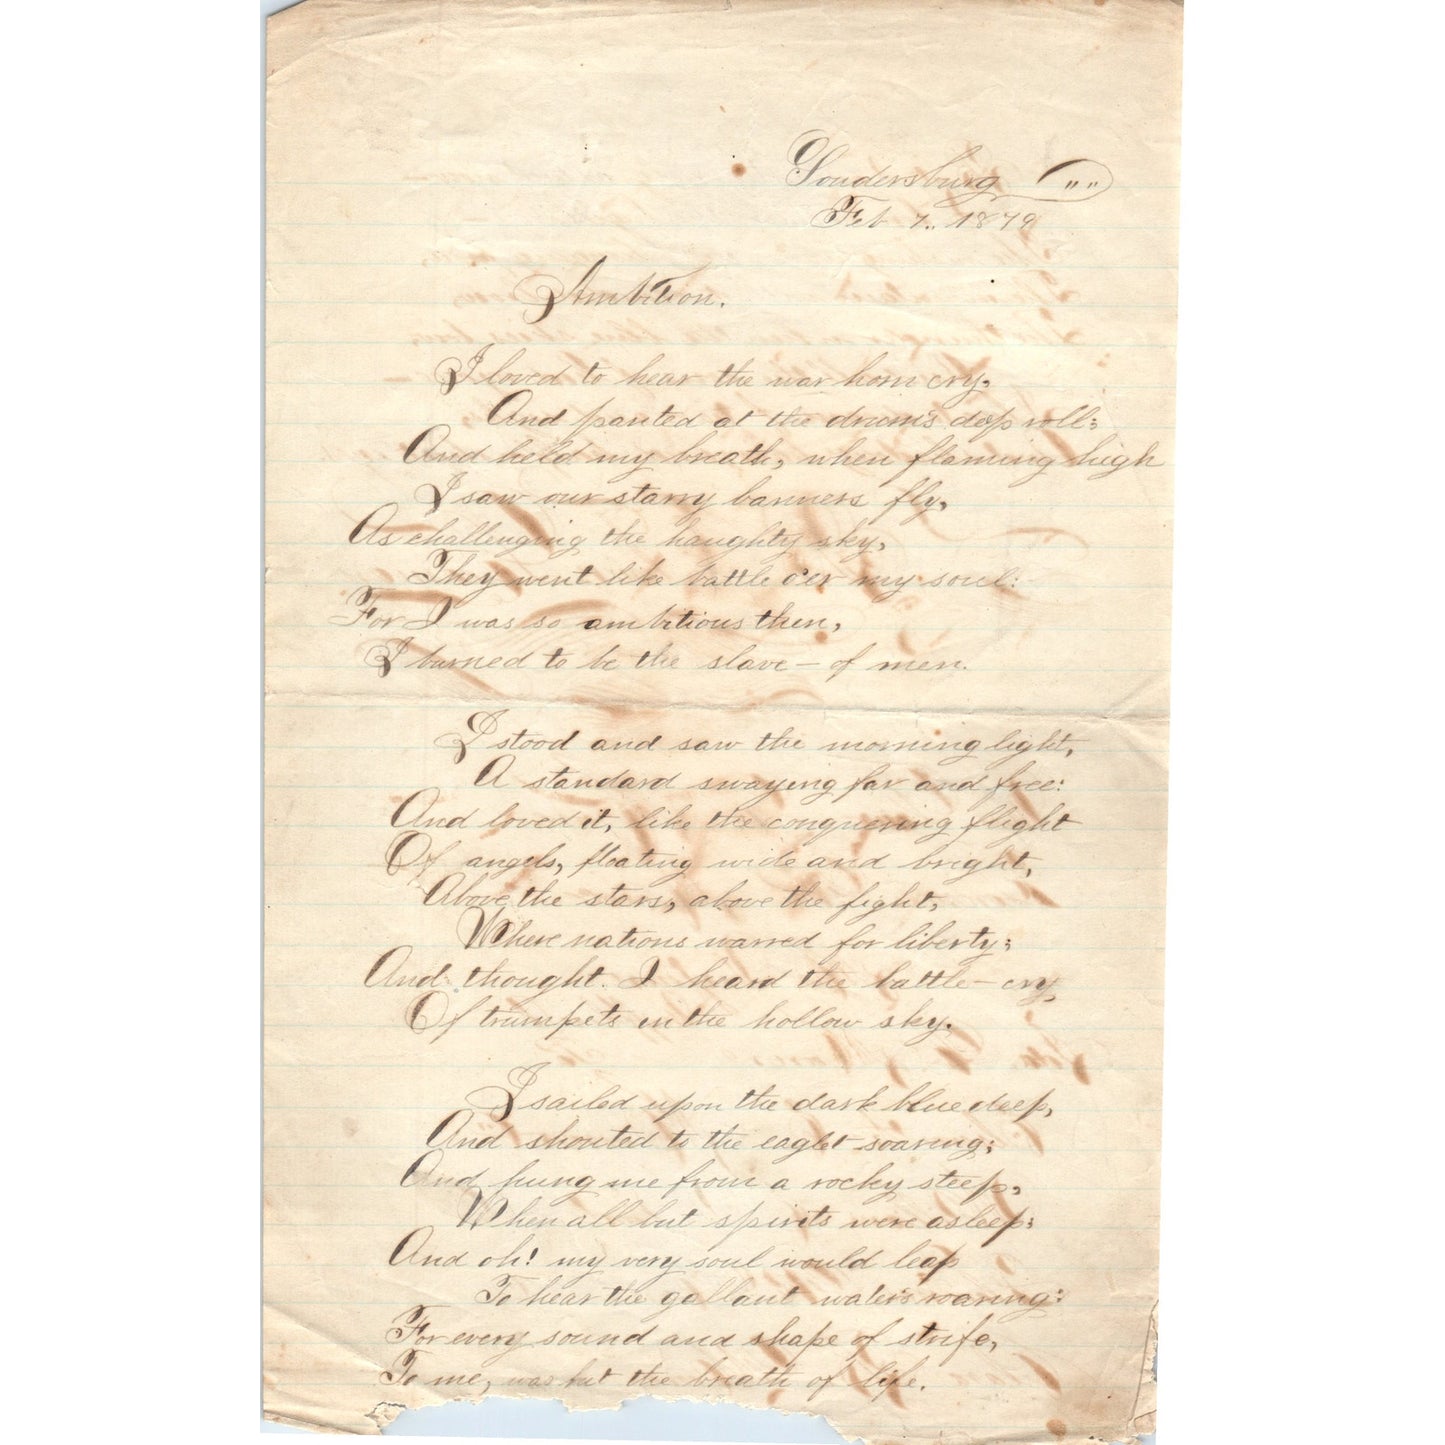 Soudersburg " "
Feb 7.. 1879
Ambition.
I loved to hear the war horn cry,
And panted at the drum's deep roll;
And held my breath, when flaming high
I saw our starry banners fly,
As challenging the haughty sky,
They went like battle o'er my soul:
For I was so ambitious then,
I burned to be the slave - of men.
I stood and saw the morning light,
A standard swaying far and free:
And loved it, like the conquering flight
Of angels, floating wide and bright,
Above the stars, above the fight,
Where nations warred for liberty;
And thought. I heard the battle - cry,
Of trumpets in the hollow sky.
I sailed upon the dark blue deep,
And shouted to the eaglet soaring;
And hung me from a rocky steep,
When all but spirits were asleep;
And oh! my very soul would leap
To hear the gallant waters roaring:
For every sound and shape of strife,
To me, was but the breath of life.